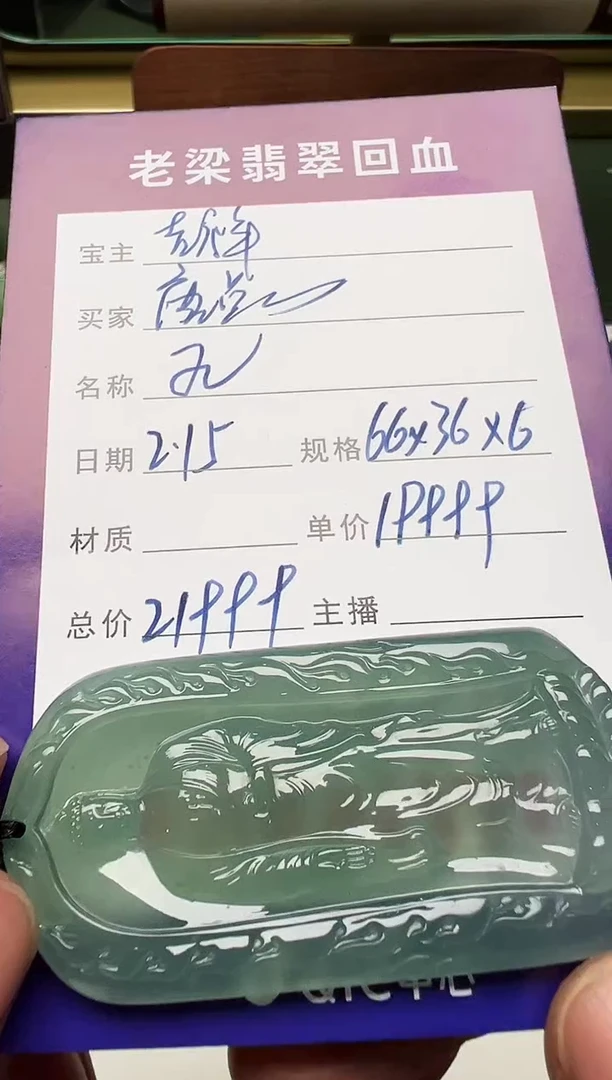 老梁翡翠回血
宝主
买家
名称
日期 2·15 规格 66x36x6
材质 单价 19999
总价 21999 主播
QIC中心